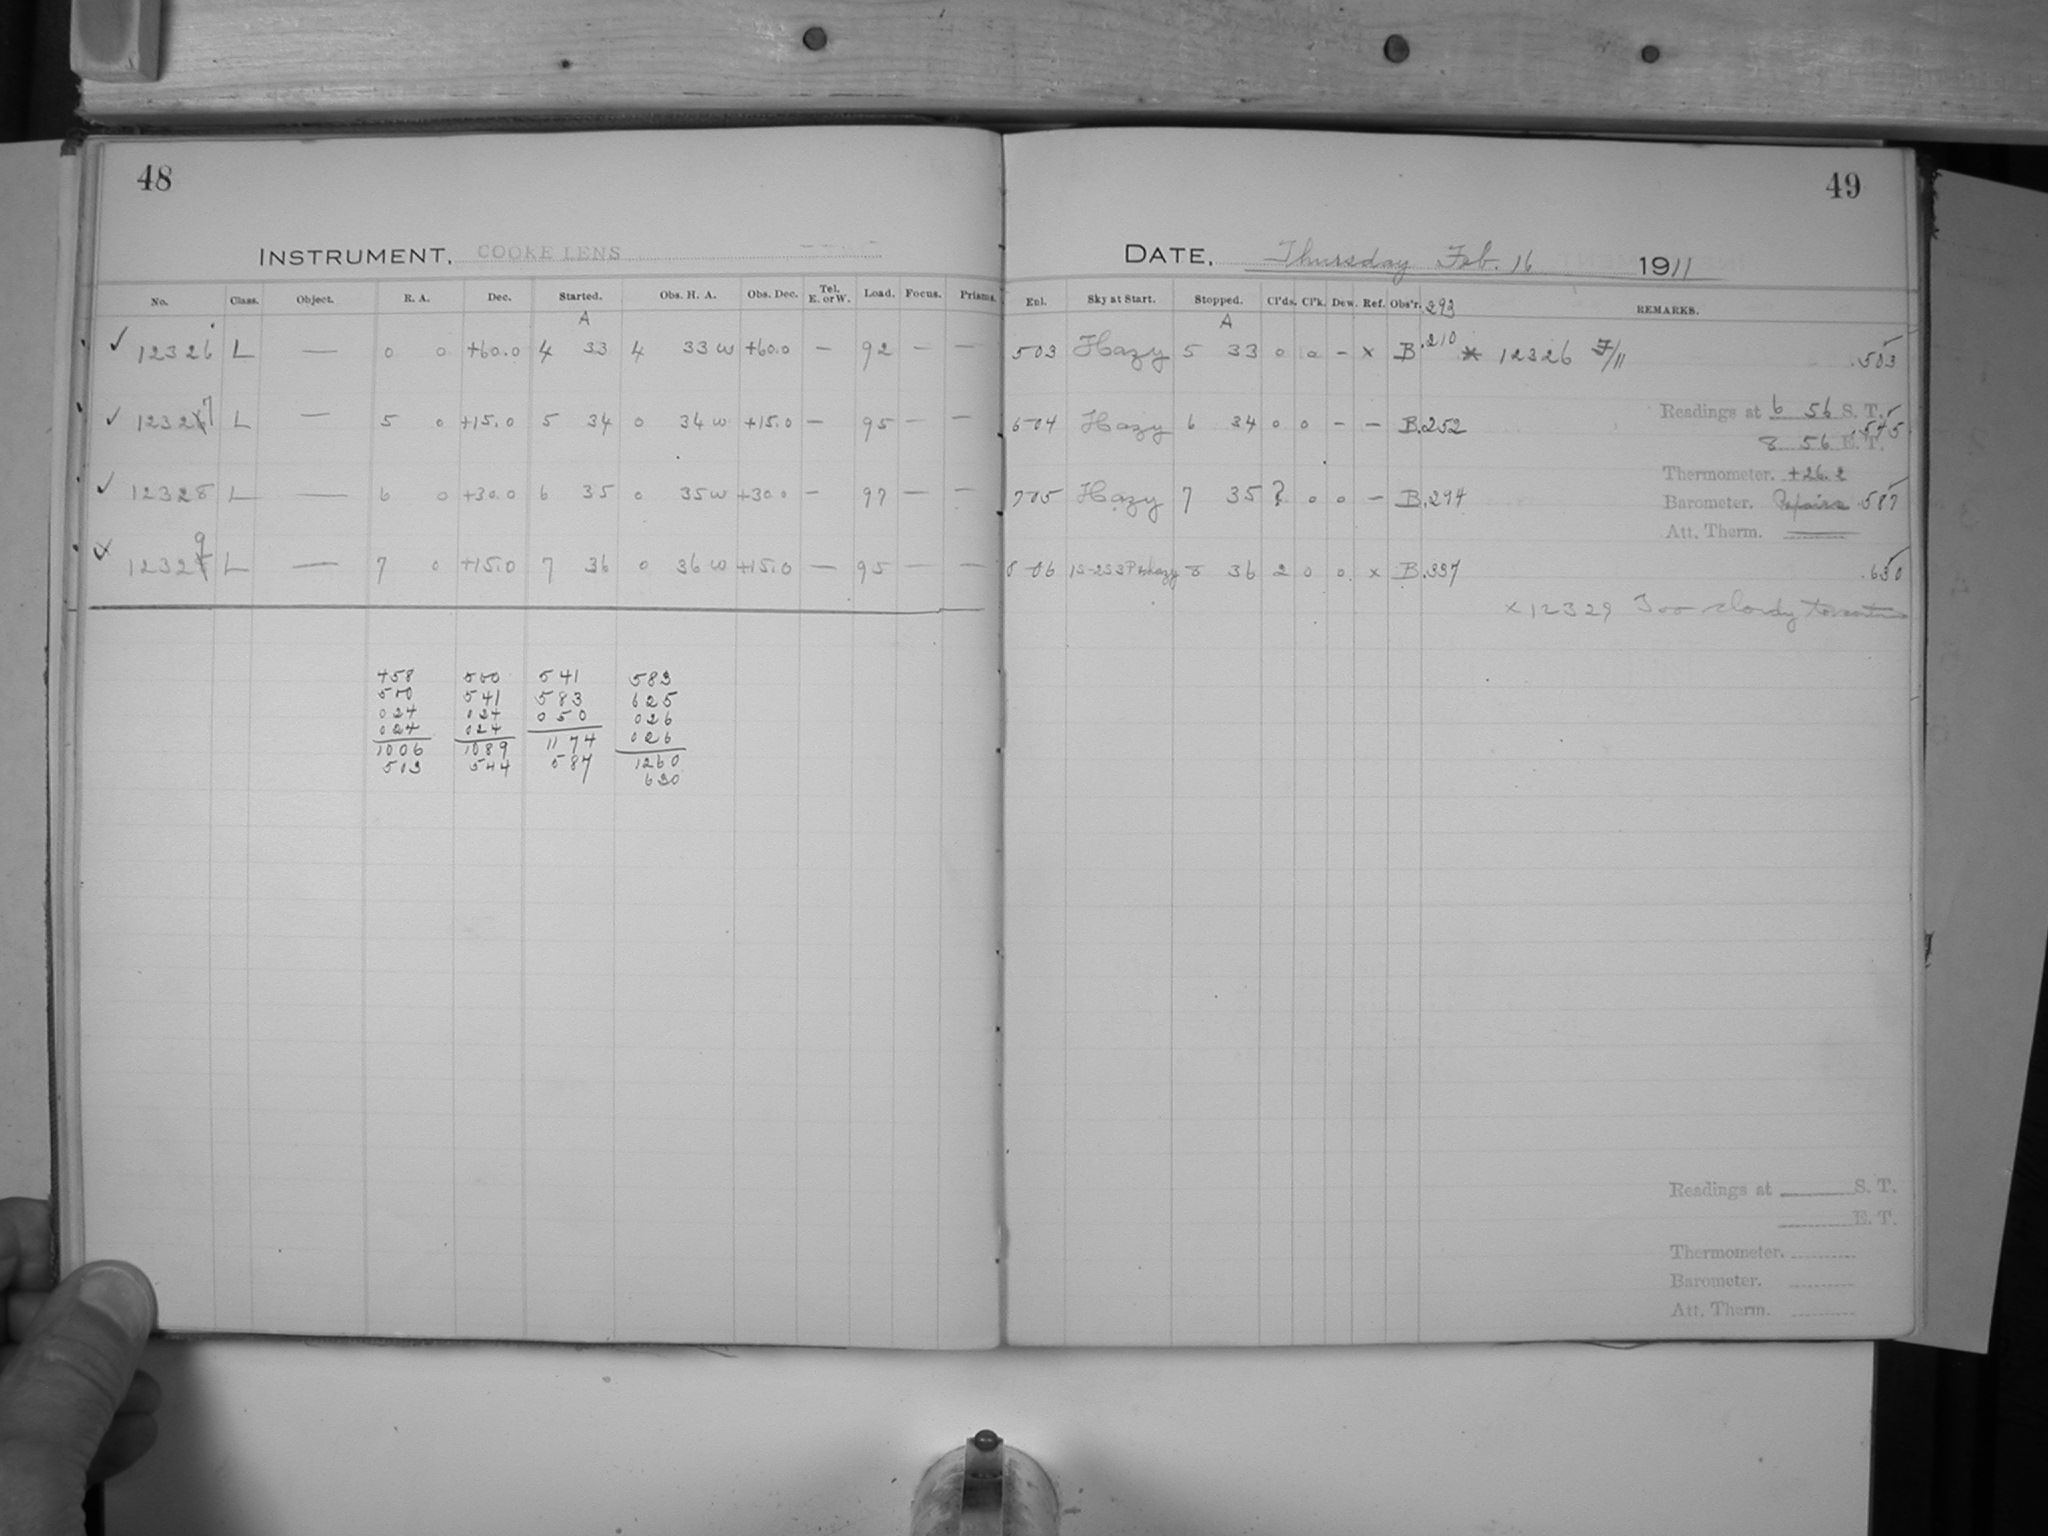 48
INSTRUMENT. COOKE LENS
No. Class. Object. R. A. Dec. Started. Obs. H. A. Obs. Dec. Tel. E. or W. Load. Focus. Prisms.
A
✓ 12326 L — 0 0 +60.0 4 33 4 33 W +60.0 — 92 — —
✓ 12327 L — 5 0 +15.0 5 34 0 34 W +15.0 — 95 — —
✓ 12328 L — 6 0 +30.0 6 35 0 35 W +30.0 — 97 — —
12329 L — 7 0 +15.0 7 36 0 36 W +15.0 — 95 — —
458 500 541 583
500 541 583 625
024 024 050 026
024 024 026
1006 1089 1174 1260
503 544 587 630
49
DATE. Thursday Feb. 16 1911
Enl. Sky at Start. Stopped. Cl'ds. Cl'k. Dew. Ref. Obs'r. 293 REMARKS.
A
503 Hazy 5 33 0 0 — x B .210 * 12326 .503
Readings at 6 56 S. T.
604 Hazy 6 34 0 0 — — B .252 .545
8 56 E. T.
Thermometer. +26.2
705 Hazy 7 35 ? 0 0 — B .294 .587
Barometer.
Att. Therm.
806 hazy 8 36 2 0 0 x B .337 .630
x 12329 Too cloudy
Readings at S. T.
E. T.
Thermometer.
Barometer.
Att. Therm.